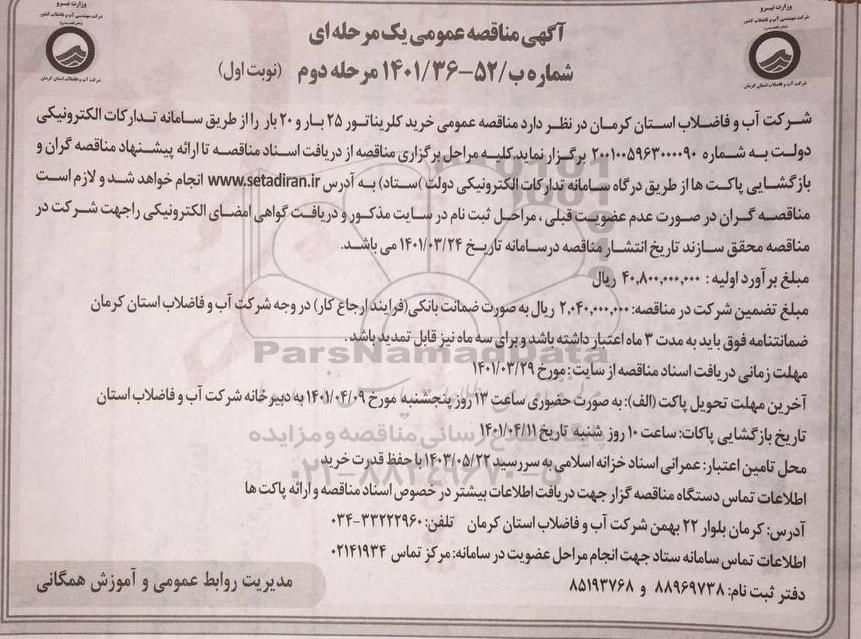 وزارت نیرو
شرکت مهندسی آب و فاضلاب کشور
شرکت آب و فاضلاب استان کرمان
وزارت نیرو
شرکت مهندسی آب و فاضلاب کشور
شرکت آب و فاضلاب استان کرمان
آگهی مناقصه عمومی یک مرحله ای
شماره ب/۵۲-۱۴۰۱/۳۶ مرحله دوم (نوبت اول)
شرکت آب و فاضلاب استان کرمان در نظر دارد مناقصه عمومی خرید کلریناتور ۲۵ بار و ۲۰ بار را از طریق سامانه تدارکات الکترونیکی
دولت به شماره ۲۰۰۱۰۰۵۹۶۳۰۰۰۰۹۰ برگزار نماید.کلیه مراحل برگزاری مناقصه از دریافت اسناد مناقصه تا ارائه پیشنهاد مناقصه گران و
بازگشایی پاکت ها از طریق درگاه سامانه تدارکات الکترونیکی دولت )ستاد) به آدرس www.setadiran.ir انجام خواهد شد و لازم است
مناقصه گران در صورت عدم عضویت قبلی ، مراحل ثبت نام در سایت مذکور و دریافت گواهی امضای الکترونیکی راجهت شرکت در
مناقصه محقق سازند تاریخ انتشار مناقصه درسامانه تاریخ ۱۴۰۱/۰۳/۲۴ می باشد.
مبلغ برآورد اولیه : ۴۰,۸۰۰,۰۰۰,۰۰۰ ریال
مبلغ تضمین شرکت در مناقصه: ۲,۰۴۰,۰۰۰,۰۰۰ ریال به صورت ضمانت بانکی(فرایند ارجاع کار) در وجه شرکت آب و فاضلاب استان کرمان
ضمانتنامه فوق باید به مدت ۳ ماه اعتبار داشته باشد و برای سه ماه نیز قابل تمدید باشد .
ParsNamadData
مهلت زمانی دریافت اسناد مناقصه از سایت : مورخ ۱۴۰۱/۰۳/۲۹
آخرین مهلت تحویل پاکت (الف): به صورت حضوری ساعت ۱۳ روز پنجشنبه مورخ ۱۴۰۱/۰۴/۰۹ به دبیرخانه شرکت آب و فاضلاب استان
تاریخ بازگشایی پاکات: ساعت ۱۰ روز شنبه تاریخ ۱۴۰۱/۰۴/۱۱
محل تامین اعتبار: عمرانی اسناد خزانه اسلامی به سررسید ۱۴۰۳/۰۵/۲۲ با حفظ قدرت خرید
۰۲۱-۸۸۳۴۹۶۷۰-۵
اطلاعات تماس دستگاه مناقصه گزار جهت دریافت اطلاعات بیشتر در خصوص اسناد مناقصه و ارائه پاکت ها
آدرس: کرمان بلوار ۲۲ بهمن شرکت آب و فاضلاب استان کرمان تلفن: ۳۳۲۲۲۹۶۰-۰۳۴
اطلاعات تماس سامانه ستاد جهت انجام مراحل عضویت در سامانه: مرکز تماس ۰۲۱۴۱۹۳۴
دفتر ثبت نام: ۸۸۹۶۹۷۳۸ و ۸۵۱۹۳۷۶۸
مدیریت روابط عمومی و آموزش همگانی